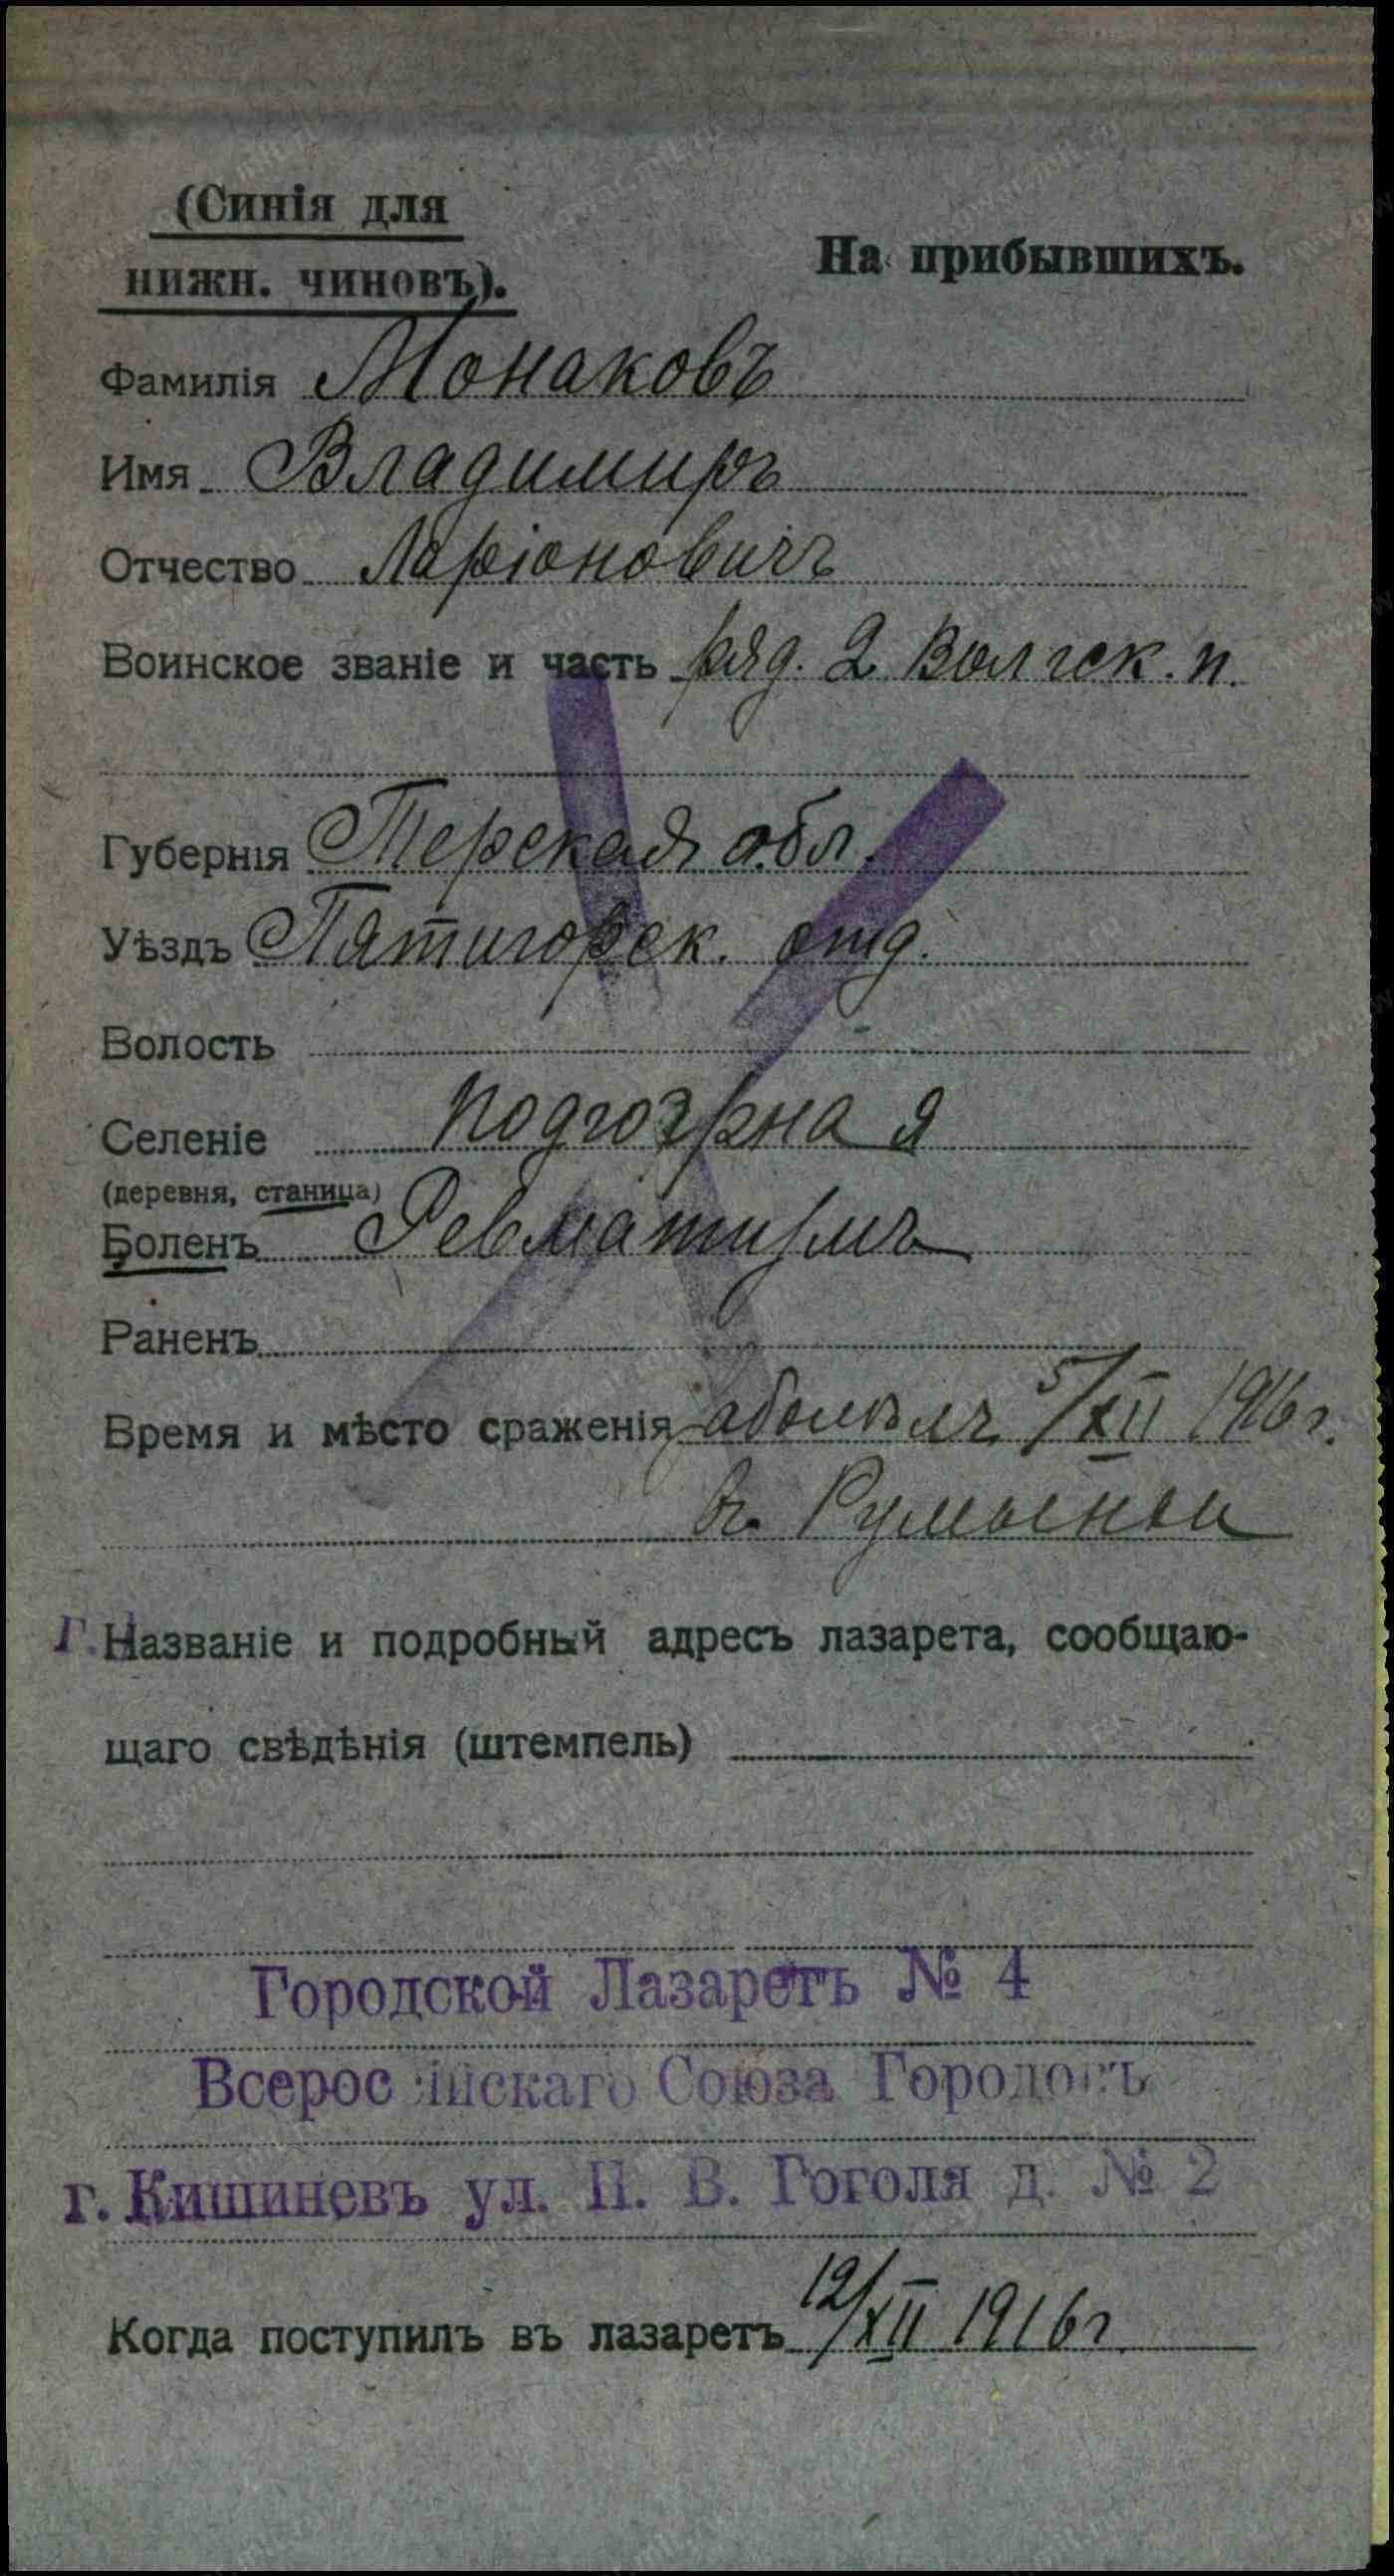 (Синія для
нижн. чиновъ).
На прибывшихъ.
Фамилія Монаковъ
Имя Владимиръ
Отчество Ларіоновичъ
Воинское званіе и часть ряд. 2 Волгск. п.
Губернія Терская обл.
Уѣздъ Пятигорск. отд.
Волость
Селеніе подгорная
(деревня, станица)
Боленъ Ревматизмъ
Раненъ
Время и мѣсто сраженія заболѣлъ 5/XII 1916 г.
въ Румыніи
Г. Названіе и подробный адресъ лазарета, сообщаю-
щаго свѣдѣнія (штемпель)
Городской Лазаретъ № 4
Всероссійскаго Союза Городовъ
г. Кишиневъ ул. Н. В. Гоголя д. № 2
Когда поступилъ въ лазаретъ 12/XII 1916 г.